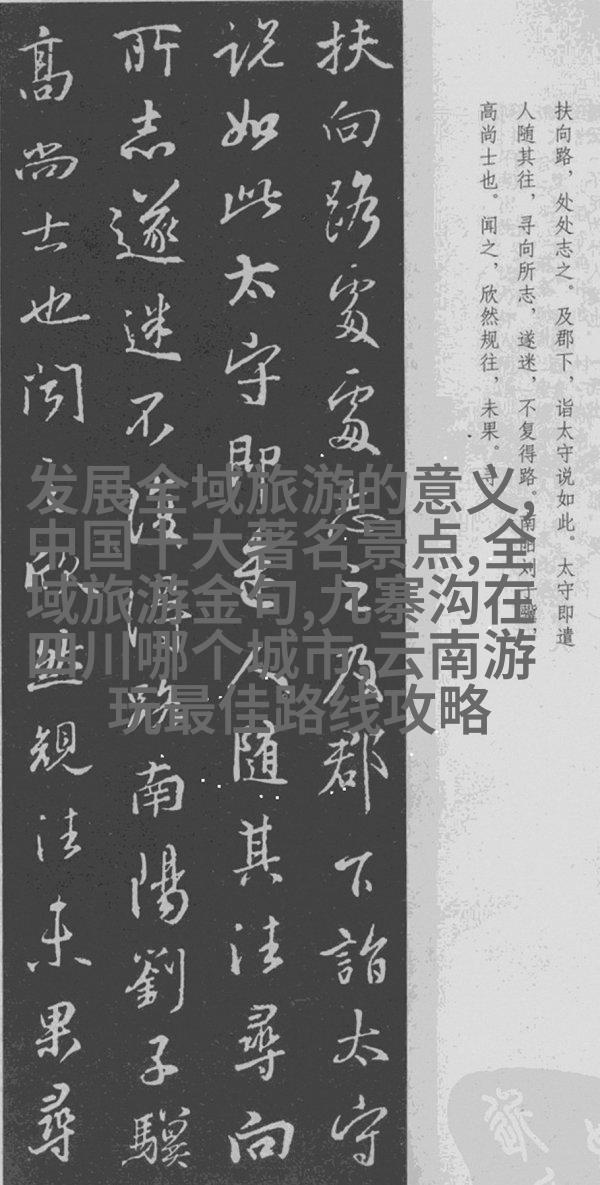 扶向路，处处志之。及郡下，诣太守说如此。太守即遣
人随其往，寻向所志，遂迷，不复得路。南阳刘子骥，
高尚士也。闻之，欣然规往，未果。寻
扶向路處處志之及郡下詣太守
説如此太守即遣人随其往尋向
所志遂迷不復得路南陽劉子驥
高尚士也闻之欣然規往未果尋
发展全域旅游的意义,
中国十大著名景点,全
域旅游金句,九寨沟在
四川哪个城市,云南游
玩最佳路线攻略